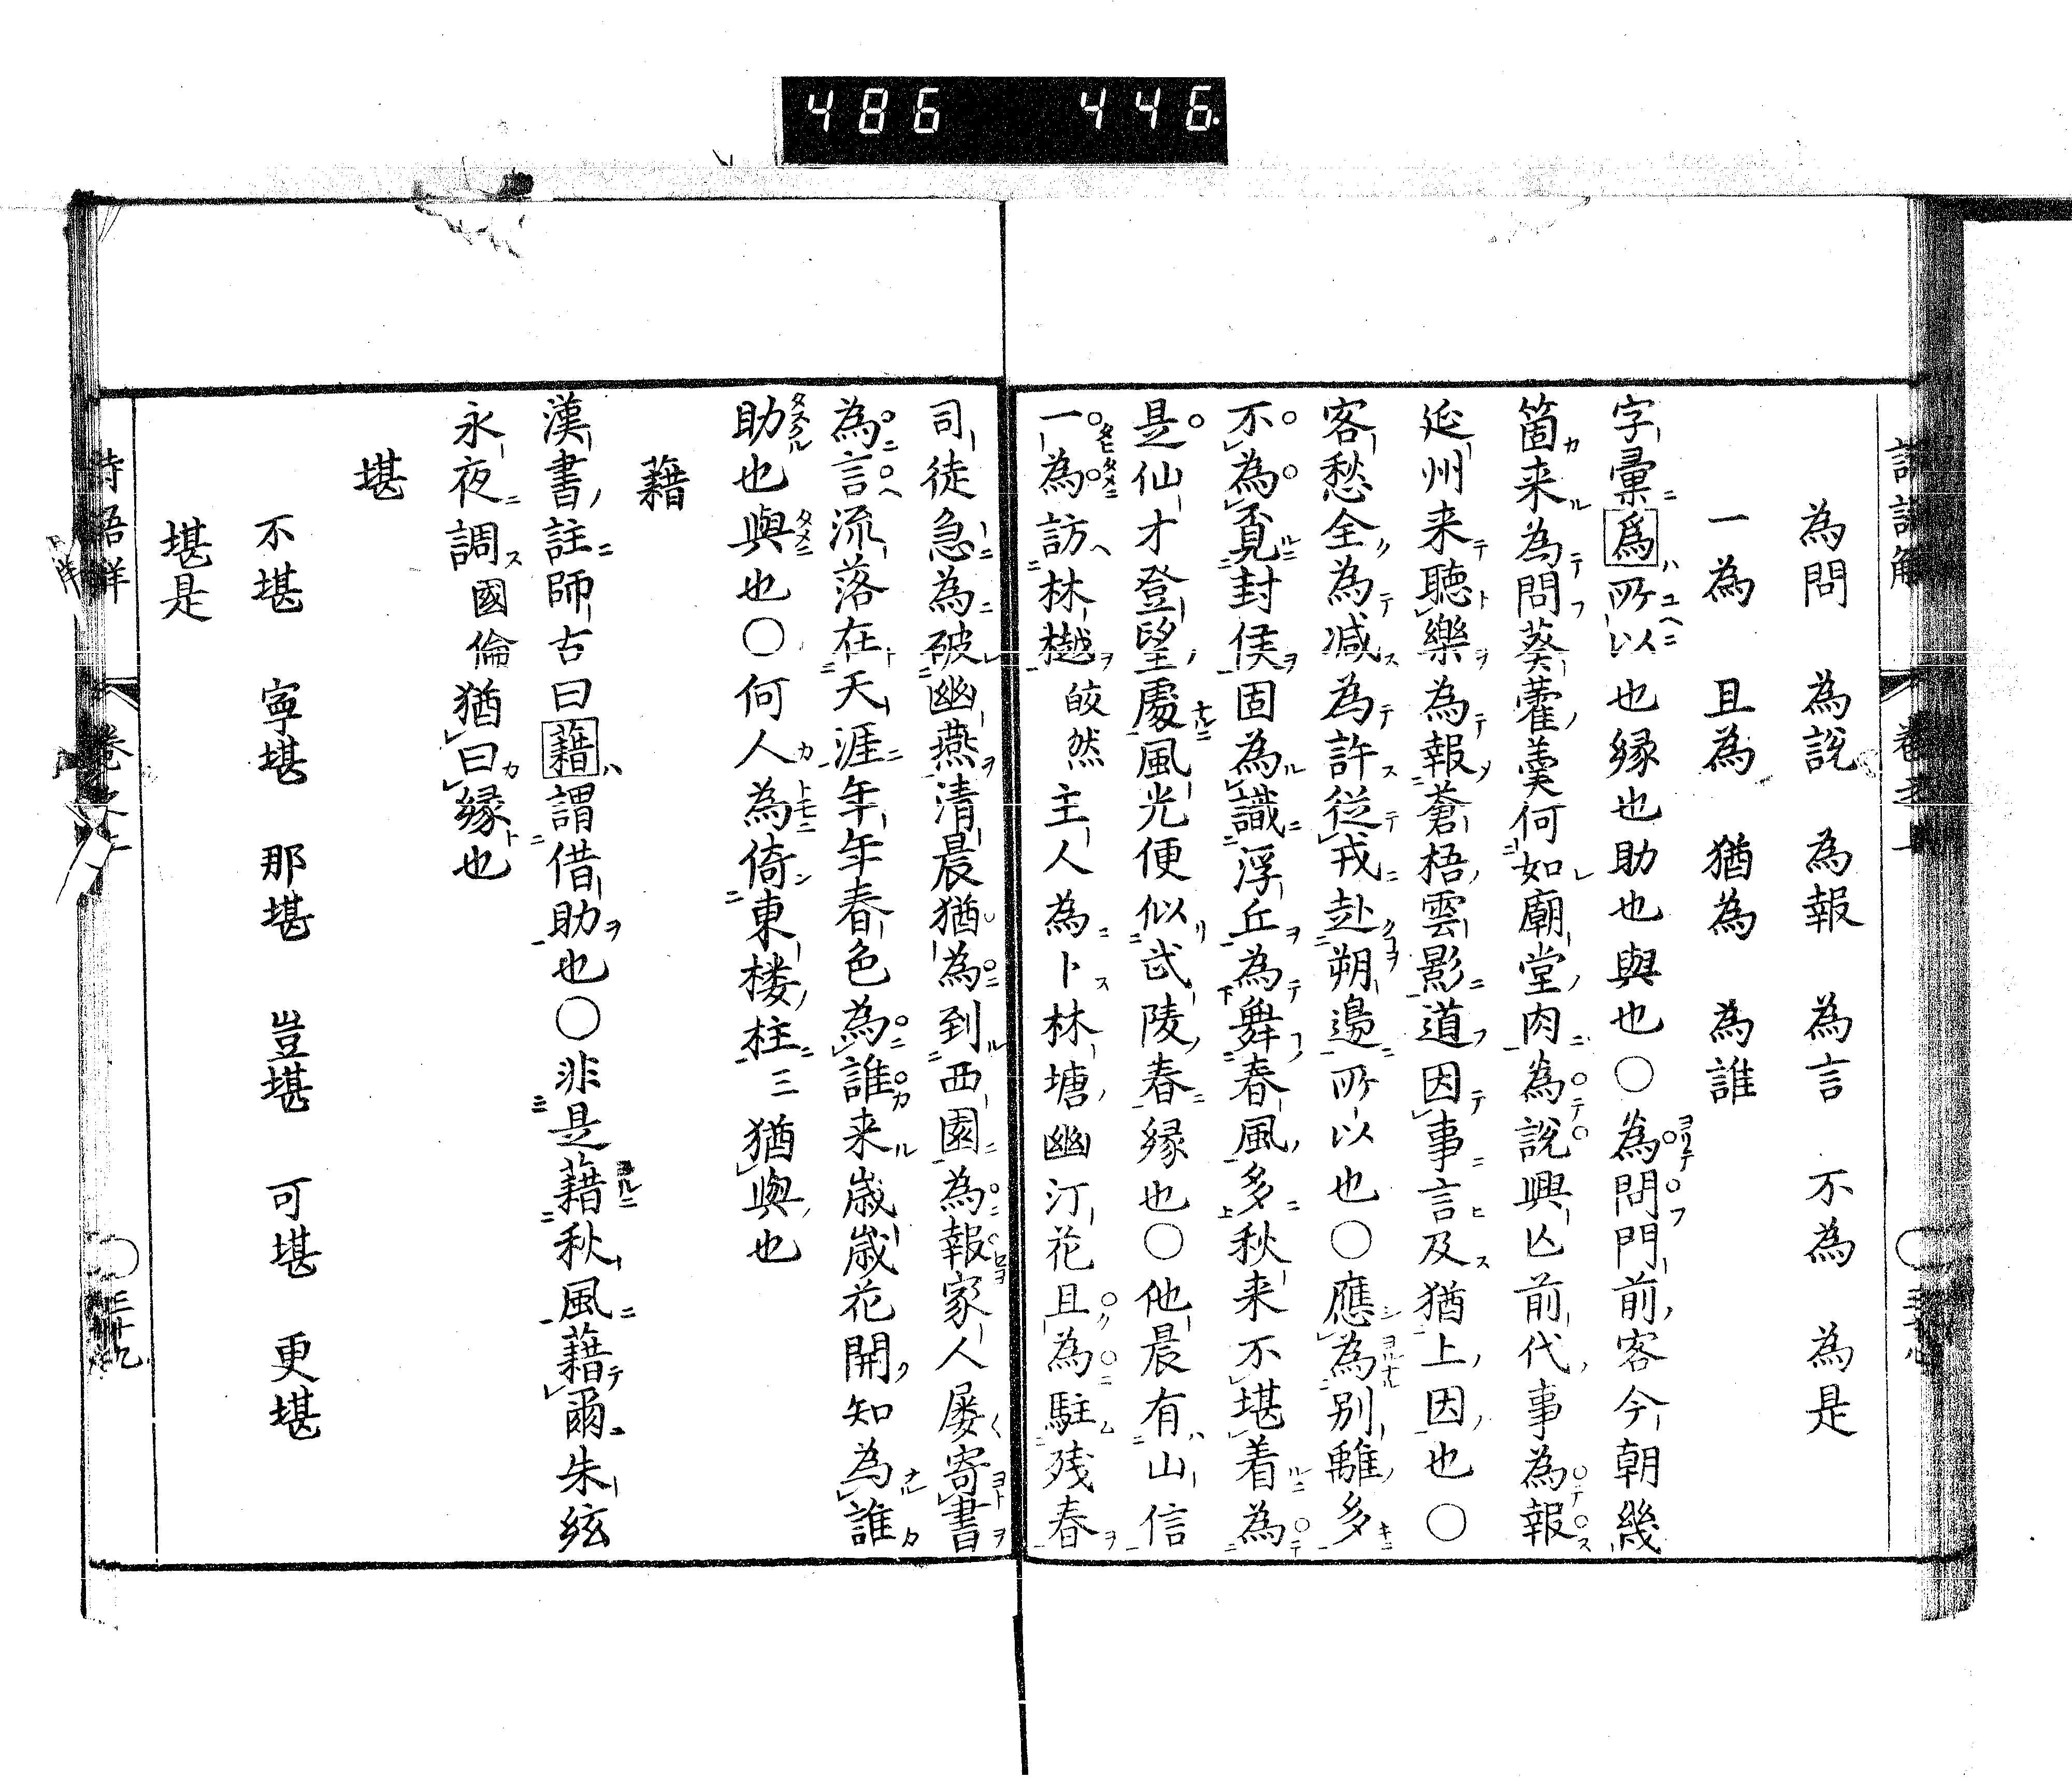 486 446.
為問 為說 為報 為言 不為 為是
一為 且為 猶為 為誰
字彙爲所以也縁也助也與也○為問門前客今朝幾
箇来為問葵藿羮何如廟堂肉為說興亾前代事為報
延州来聴樂為報蒼梧雲影道因事言及猶上因也○
客愁全為减為許従戎赴朔邉所以也○應為別離多
不為覔封侯固為識浮丘為舞春風多秋来不堪着為
是仙才登望處風光便似武陵春縁也○他晨有山信
一為訪林樾皎然主人為卜林塘幽汀花且為駐残春
司徒急為破幽燕清晨猶為到西園為報家人屡寄書
為言流落在天涯年年春色為誰来歳歳花開知為誰
助也與也○何人為倚東楼柱三猶與也
藉
漢書註師古曰藉謂借助也○非是藉秋風藉爾朱絃
永夜調國倫猶曰縁也
堪
不堪 寧堪 那堪 豈堪 可堪 更堪
堪是
三十九